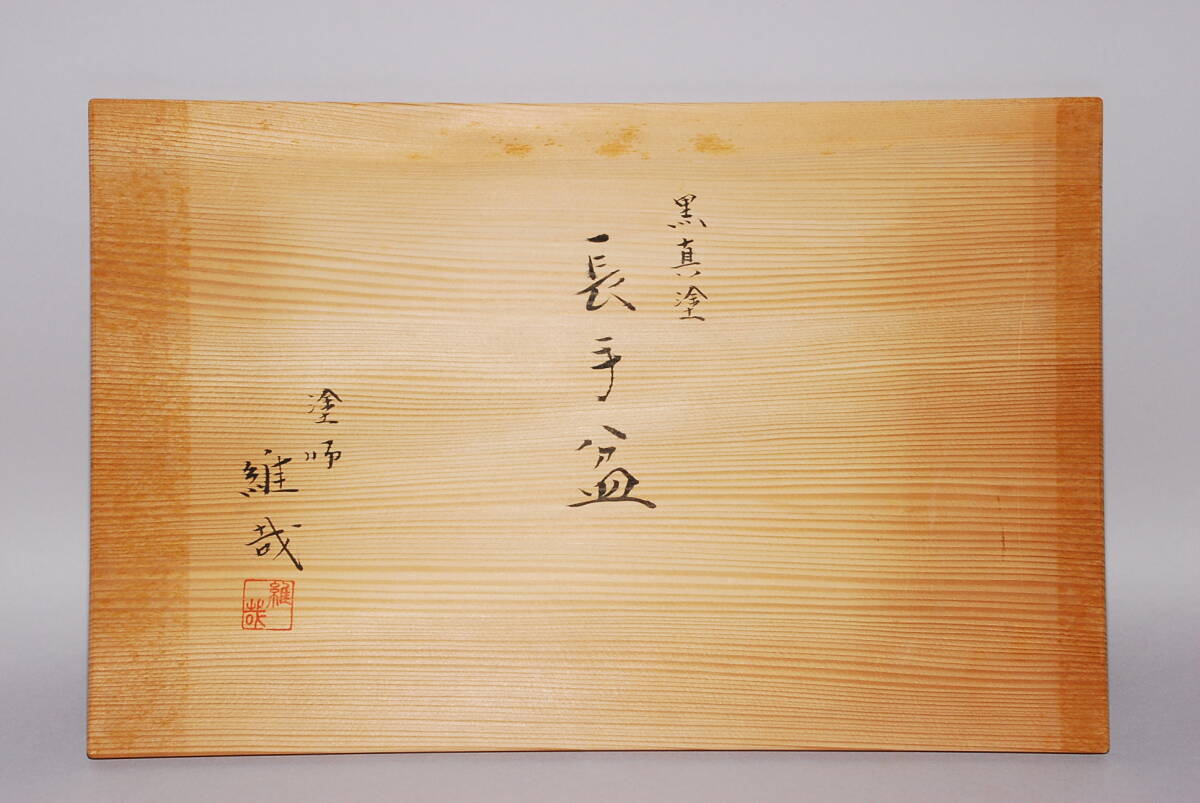 黒真塗
長手盆
塗師
維哉
維哉